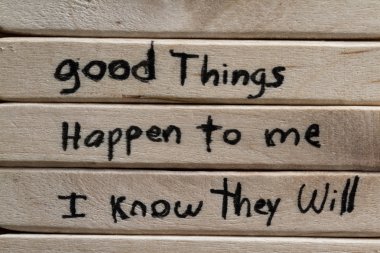 good Things
Happen to me
I know they Will